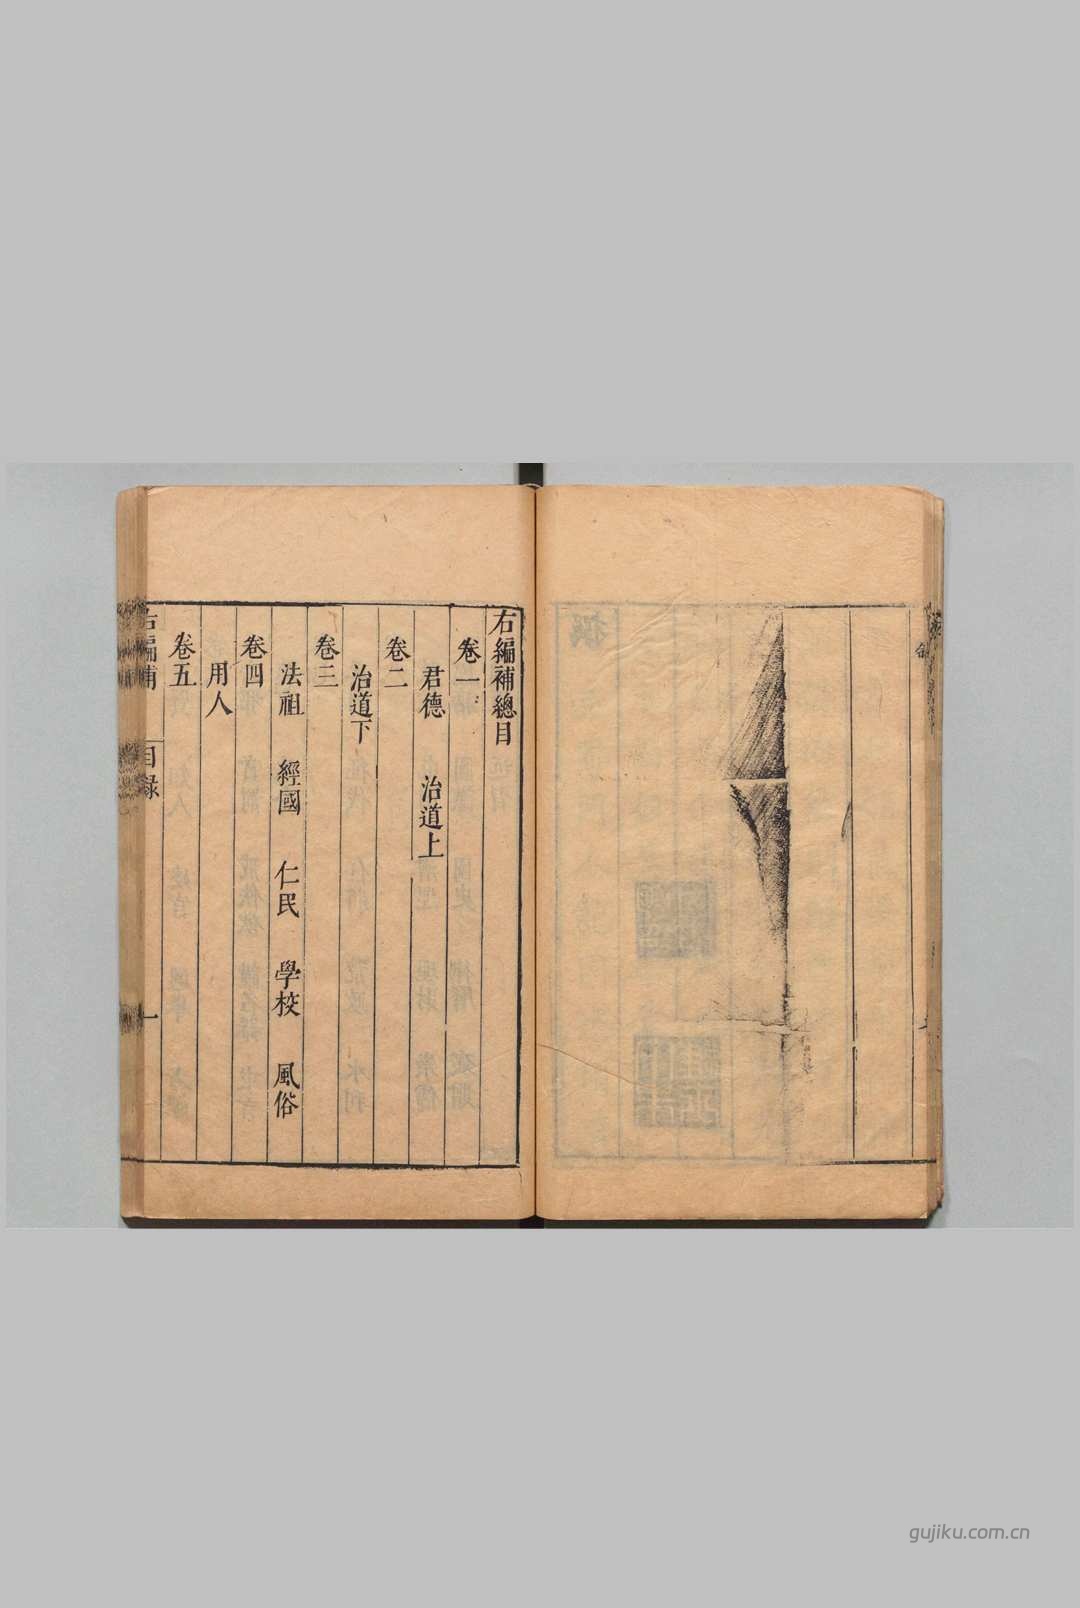 右編補總目
卷一
君德　治道上
卷二
治道下
卷三
法祖　經國　仁民　學校　風俗
卷四
用人
卷五
右編補　目錄　一
gujiku.com.cn